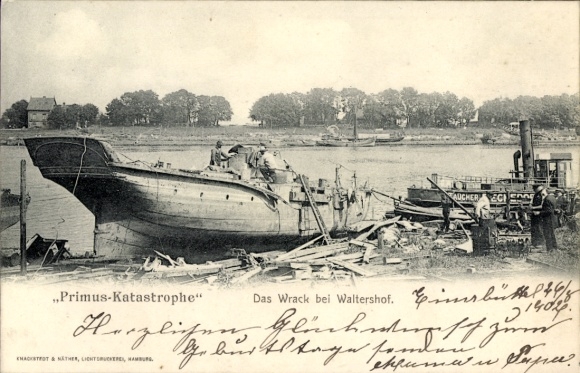 TAUCHER
„Primus-Katastrophe“ Das Wrack bei Waltershof. Eimsbüttel 26/8
1902.
Herzlichen Glückwunsch zum
Geburtstage senden
Mama u Papa.
KNACKSTEDT & NÄTHER, LICHTDRUCKEREI, HAMBURG.